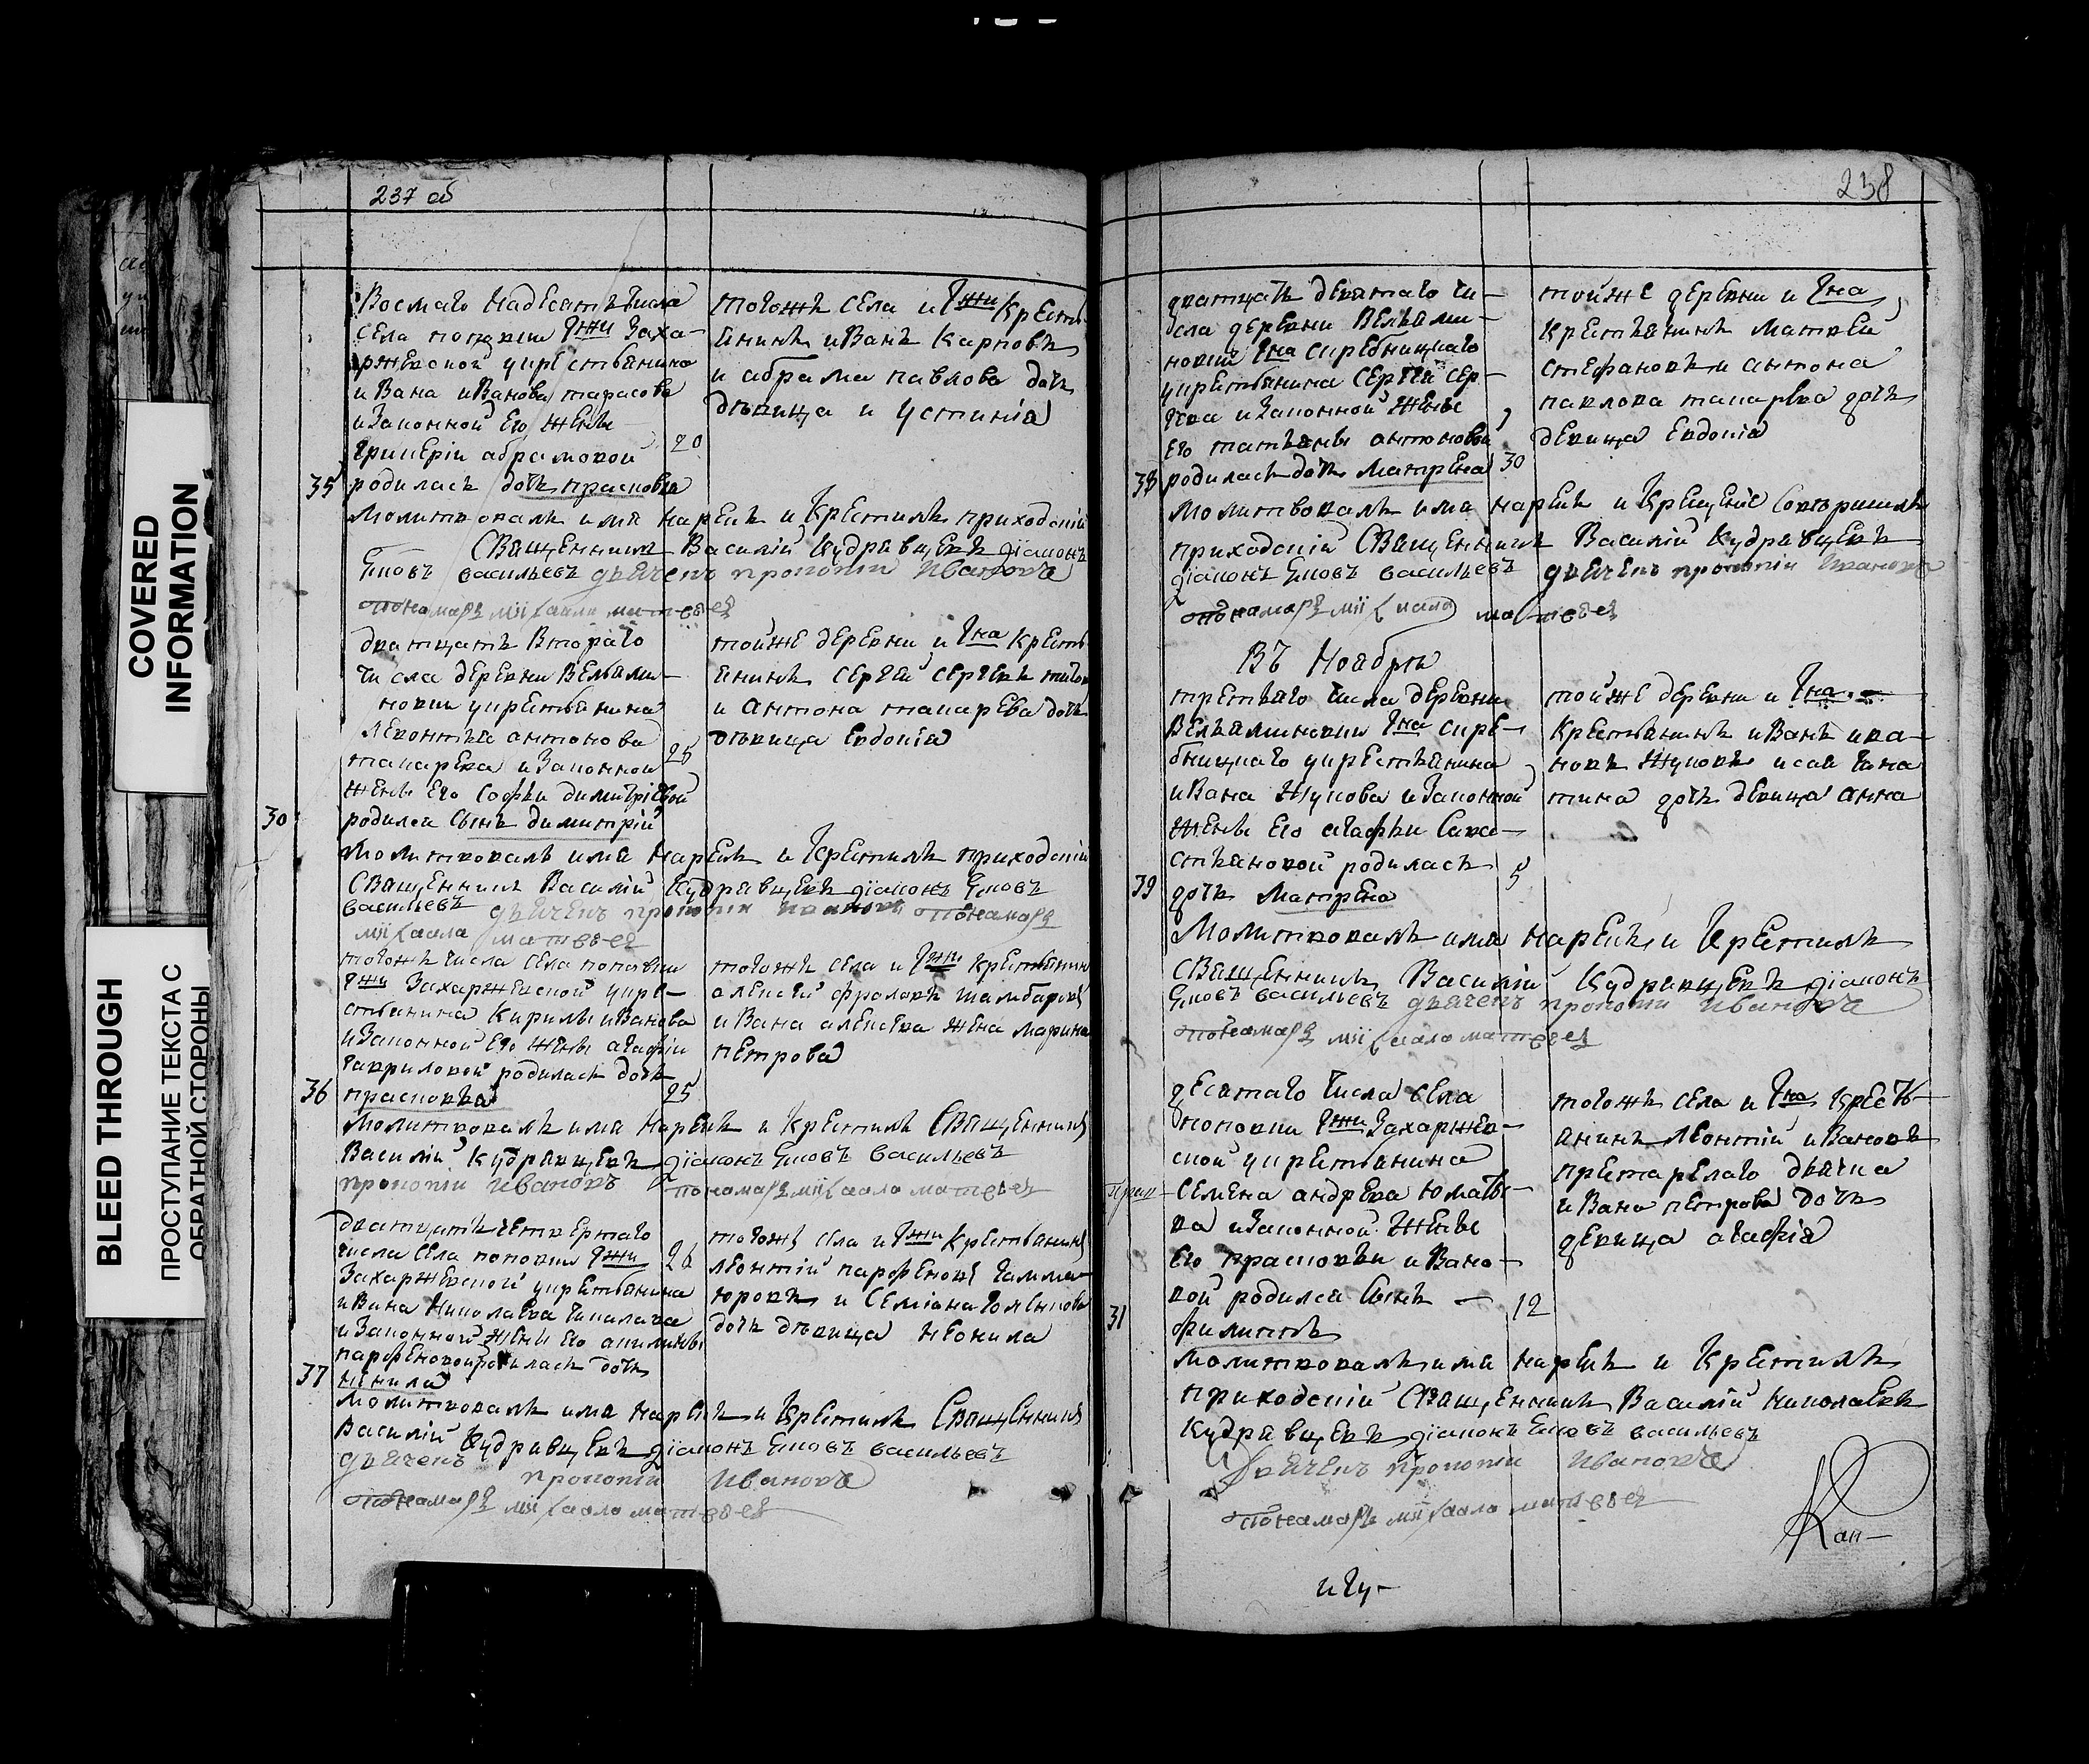 COVERED
INFORMATION
BLEED THROUGH
ПРОСТУПАНИЕ ТЕКСТА С
ОБРАТНОЙ СТОРОНЫ
237 об
Восмаго надесять числа
села поповки Гжи Заха-
ржевской у крестьянина
ивана иванова тарасова
и законной его жены
абрамовой
20
35
родилась дочь прасковья
тогожъ села и Гжи кресть-
янинъ иванъ карповъ
и абрама павлова дочь
девица иустинія
Молитвовалъ имя нарекъ и крестилъ приходскій
Священникъ Василій Кудрявцевъ діаконъ
васильевъ дьячекъ прокопіи Ивановъ
понамарь міхаила матвеев
дватцать втораго
числа деревни Вельями-
новки у крестьянина
леонтья антонова
токарева и законной
жены его софьи димитріевой
25
30
родился сынъ димитрій
тойже деревни и Гна кресть-
янинъ сергей сергеев
и антона токарева дочь
девица евдокія
Молитвовалъ имя нарекъ и крестилъ приходскій
Священникъ Василій Кудрявцевъ діаконъ
васильевъ дьячекъ прокопіи ивановъ понамарь
міхаила матвеев
тогожъ числа села поповки
Гжи Захаржевской у кре-
стьянина кирилы иванова
и законной его жены агафіи
гавриловой родилась дочь
36
прасковья
25
тогожъ села и Гжи крестьянинъ
алексей фроловъ
и ивана алексева жена марина
петрова
Молитвовалъ имя нарекъ и крестилъ Священникъ
Василій Кудрявцевъ діаконъ васильевъ
прокопіи ивановъ понамарь міхаила матвеев
дватцать четвертаго
числа села поповки Гжи
Захаржевской у крестьянина
ивана николаева
и законной жены его акилины
парфеновой родилась дочь
26
37
неонила
тогожъ села и Гжи крестьянинъ
леонтій парфеновъ
и семіона дочь девица неонила
Молитвовалъ имя нарекъ и крестилъ Священникъ
Василій Кудрявцевъ діаконъ васильевъ
дьячекъ прокопіи Ивановъ
понамарь міхаила матвеев
238
дватцать девятаго чи-
сла деревни Вельями-
новки Гна
у крестьянина сергея сер-
геева и законной жены
его татьяны антоновой
38
родилась дочь Матрена
30
тойже деревни и Гна
крестьянинъ матвей
стефановъ и антона
павлова токарева дочь
девица евдокія
Молитвовалъ имя нарекъ и крещеніе совершилъ
приходскій Священникъ Василій Кудрявцевъ
діаконъ васильевъ дьячекъ прокопіи Ивановъ
понамарь міхаила матвеев
Въ Ноябре
третьяго числа деревни
Вельяминовки Гна
у крестьянина
ивана жукова и законной
жены его агафьи сава-
стьяновой родилась
39
дочь Матрена
5
тойже деревни и Гна
крестьянинъ иванъ ива-
новъ жуковъ
дочь девица анна
Молитвовалъ имя нарекъ и крестилъ
Священникъ Василій Кудрявцевъ діаконъ
васильевъ дьячекъ прокопіи Ивановъ
понамарь міхаила матвеев
десятаго числа села
поповки Гжи Захаржев-
ской у крестьянина
семена андреева
и законной жены
его прасковьи ивано-
вой родился сынъ
12
31
филиппъ
тогожъ села и Гжи кресть-
янинъ леонтій ивановъ
престарелаго дьячка
ивана петрова дочь
девица агафія
Молитвовалъ имя нарекъ и крестилъ
приходскій Священникъ Василій Николаевъ
Кудрявцевъ діаконъ васильевъ
Дьячекъ прокопіи Ивановъ
понамарь міхаила матвеев